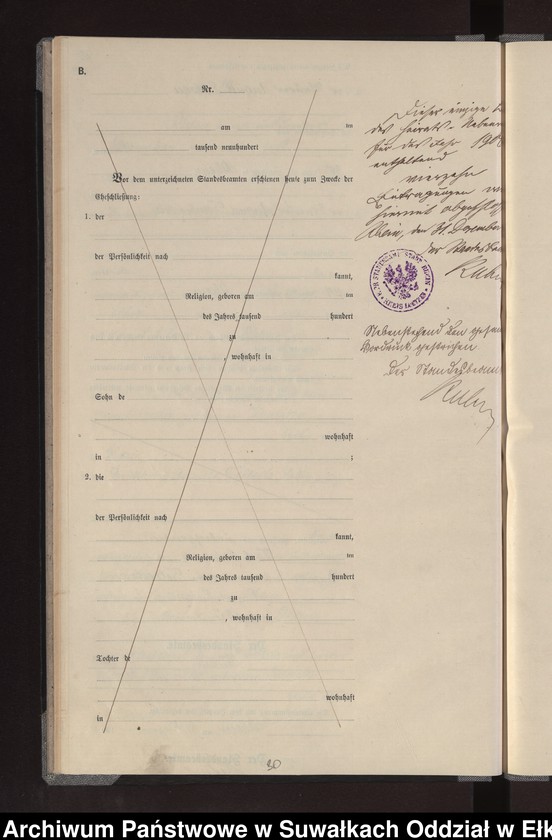 B.
Nr.
am ten
tausend neunhundert
Vor dem unterzeichneten Standesbeamten erschienen heute zum Zwecke der
Eheschließung:
1. der
der Persönlichkeit nach
kannt,
Religion, geboren am ten
des Jahres tausend hundert
zu
, wohnhaft in
Sohn de
wohnhaft
in ;
2. die
der Persönlichkeit nach
kannt,
Religion, geboren am ten
des Jahres tausend hundert
zu
, wohnhaft in
Tochter de
wohnhaft
in
Dieses
des Heirats-Neben
für das Jahr 190
enthaltend
vierzehn
Eintragungen
hiermit
den 31. Dezember
der
Nebenstehend den
Vordruck gestrichen
Der Standesbeam
30
Archiwum Państwowe w Suwałkach Oddział w Ełk